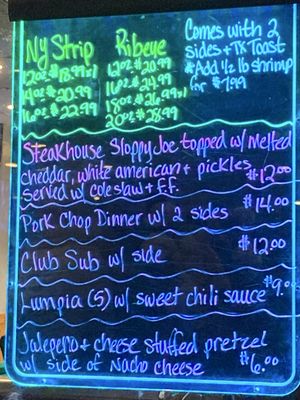 NY Strip
12oz $18.99 x1
14oz $20.99
16oz $22.99
Ribeye
12oz $20.99
16oz $24.99
18oz $26.99 x1
20oz $28.99
Comes with 2
sides + TX Toast
*Add 1/2 lb shrimp
for $7.99
Steakhouse Sloppy Joe topped w/ melted
cheddar, white american + pickles
served w/ coleslaw + F.F. $12.00
Pork Chop Dinner w/ 2 sides $14.00
Club Sub w/ side $12.00
Lumpia (5) w/ sweet chili sauce $9.00
Jalepeño + cheese stuffed pretzel
w/ side of Nacho cheese $6.00